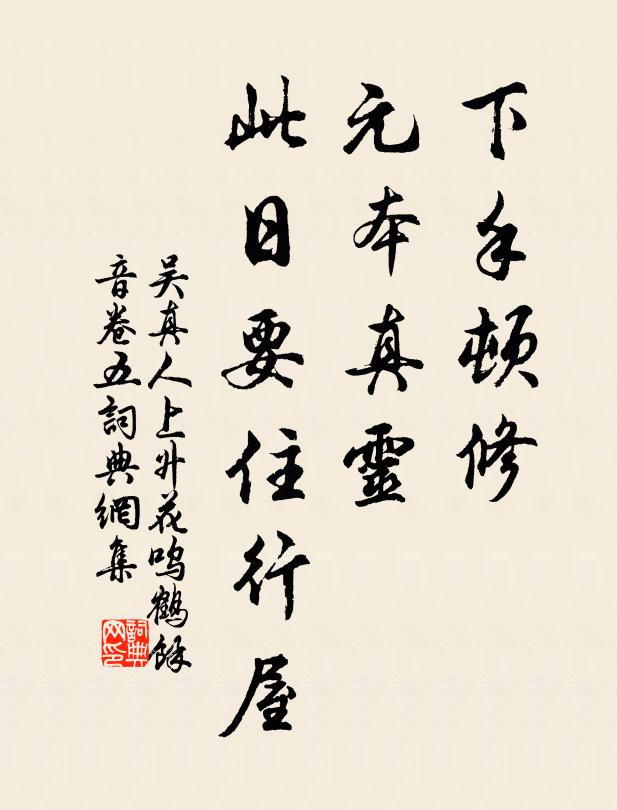 下手頓修
元本真靈
此日要住行屋
吴真人上升花鳴鶴餘
音卷五詞典網集
詞典网印